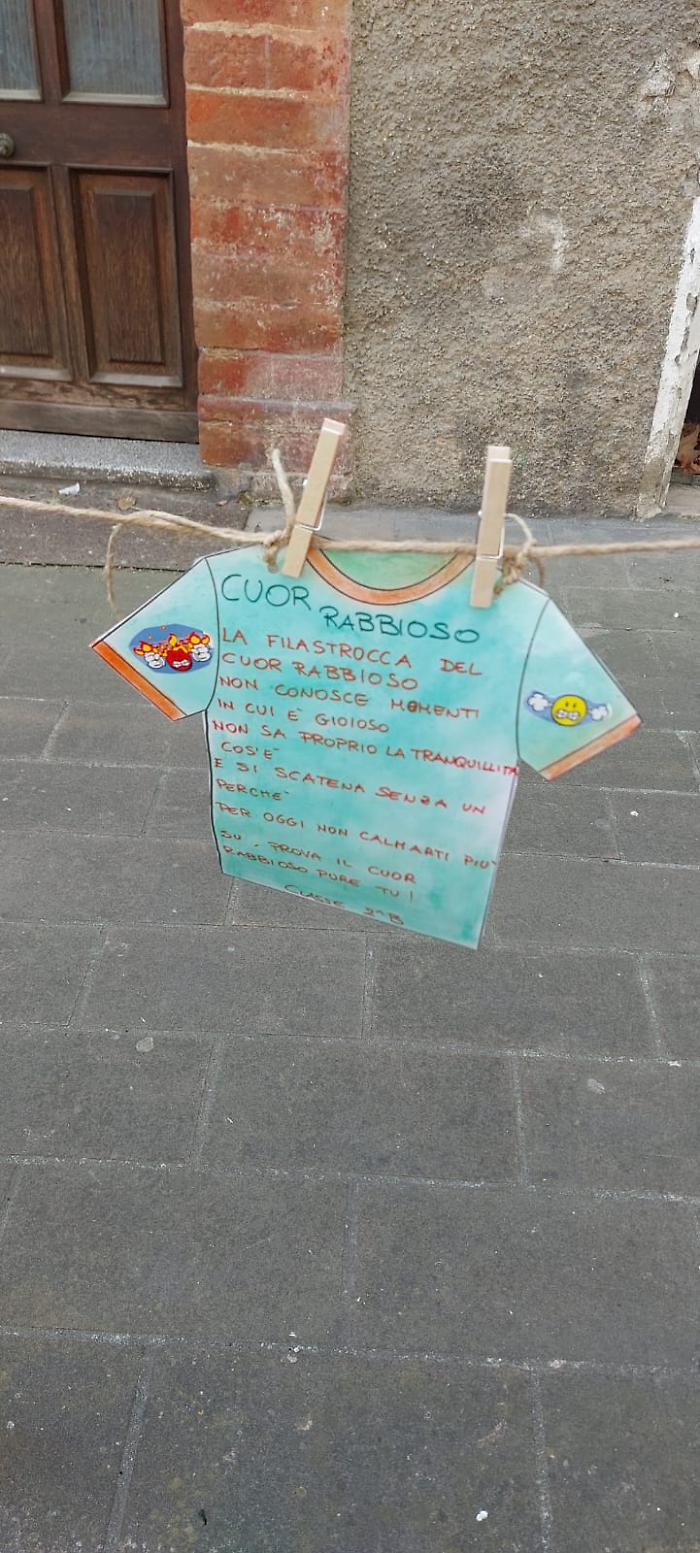 CUOR RABBIOSO
LA FILASTROCCA DEL
CUOR RABBIOSO
NON CONOSCE MOMENTI
IN CUI E' GIOIOSO
NON SA PROPRIO LA TRANQUILLITA
COS'E'
E SI SCATENA SENZA UN
PERCHE'
PER OGGI NON CALMARTI PIU'
SU, PROVA IL CUOR
RABBIOSO PURE TU!
CLASSE 2^B